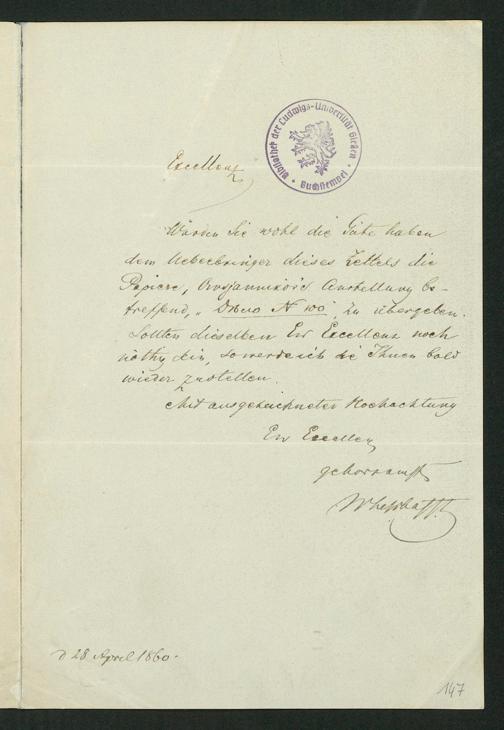 Bibliothek der Ludwigs-Universität Gießen
Buchstempel
Excellenz
Würden Sie wohl die Güte haben
dem Ueberbringer dieses Zettels die
Papiere, Anstellung be-
treffend, „Дѣло N 100", zu übergeben.
Sollten dieselben Ew Excellenz noch
nöthig sein, so werde ich sie Ihnen bald
wieder zustellen.
Mit ausgezeichneter Hochachtung
Ew Excellenz
gehorsamst
d 28 April 1860.
147